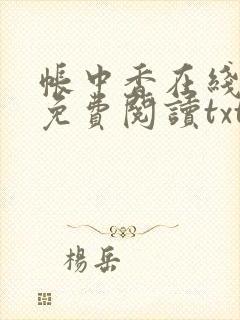 帳中香在綫
免費閱讀txt
楊岳